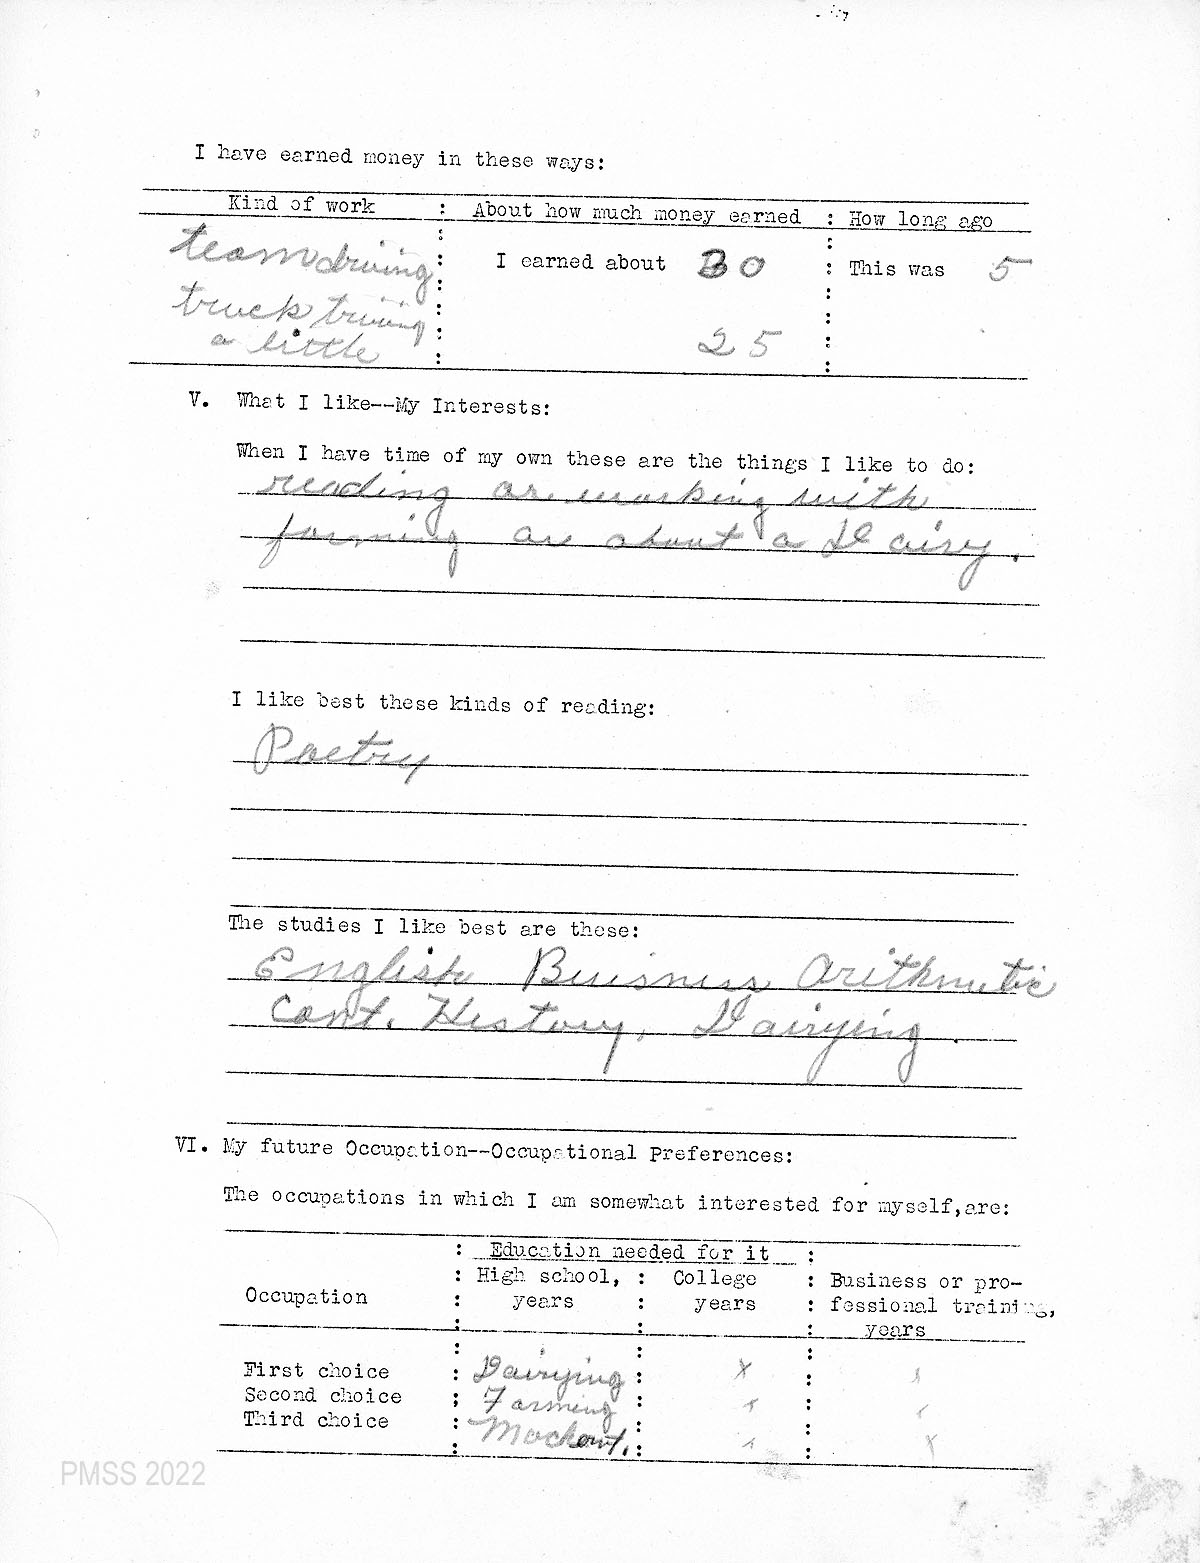 I have earned money in these ways:
Kind of work : About how much money earned : How long ago
teamdriving : I earned about 30 : This was 5
truck triving
a little 25
V. What I like--My Interests:
When I have time of my own these are the things I like to do:
reading or working with
farming or about a Dairy.
I like best these kinds of reading:
Poetry
The studies I like best are these:
English Buisness arithmetic
Cont. History, Dairying.
VI. My future Occupation--Occupational Preferences:
The occupations in which I am somewhat interested for myself,are:
: Education needed for it :
: High school, : College : Business or pro-
Occupation : years : years : fessional training,
years
First choice : Dairying : x :
Second choice : Farming : x : x
Third choice : : x : x
PMSS 2022